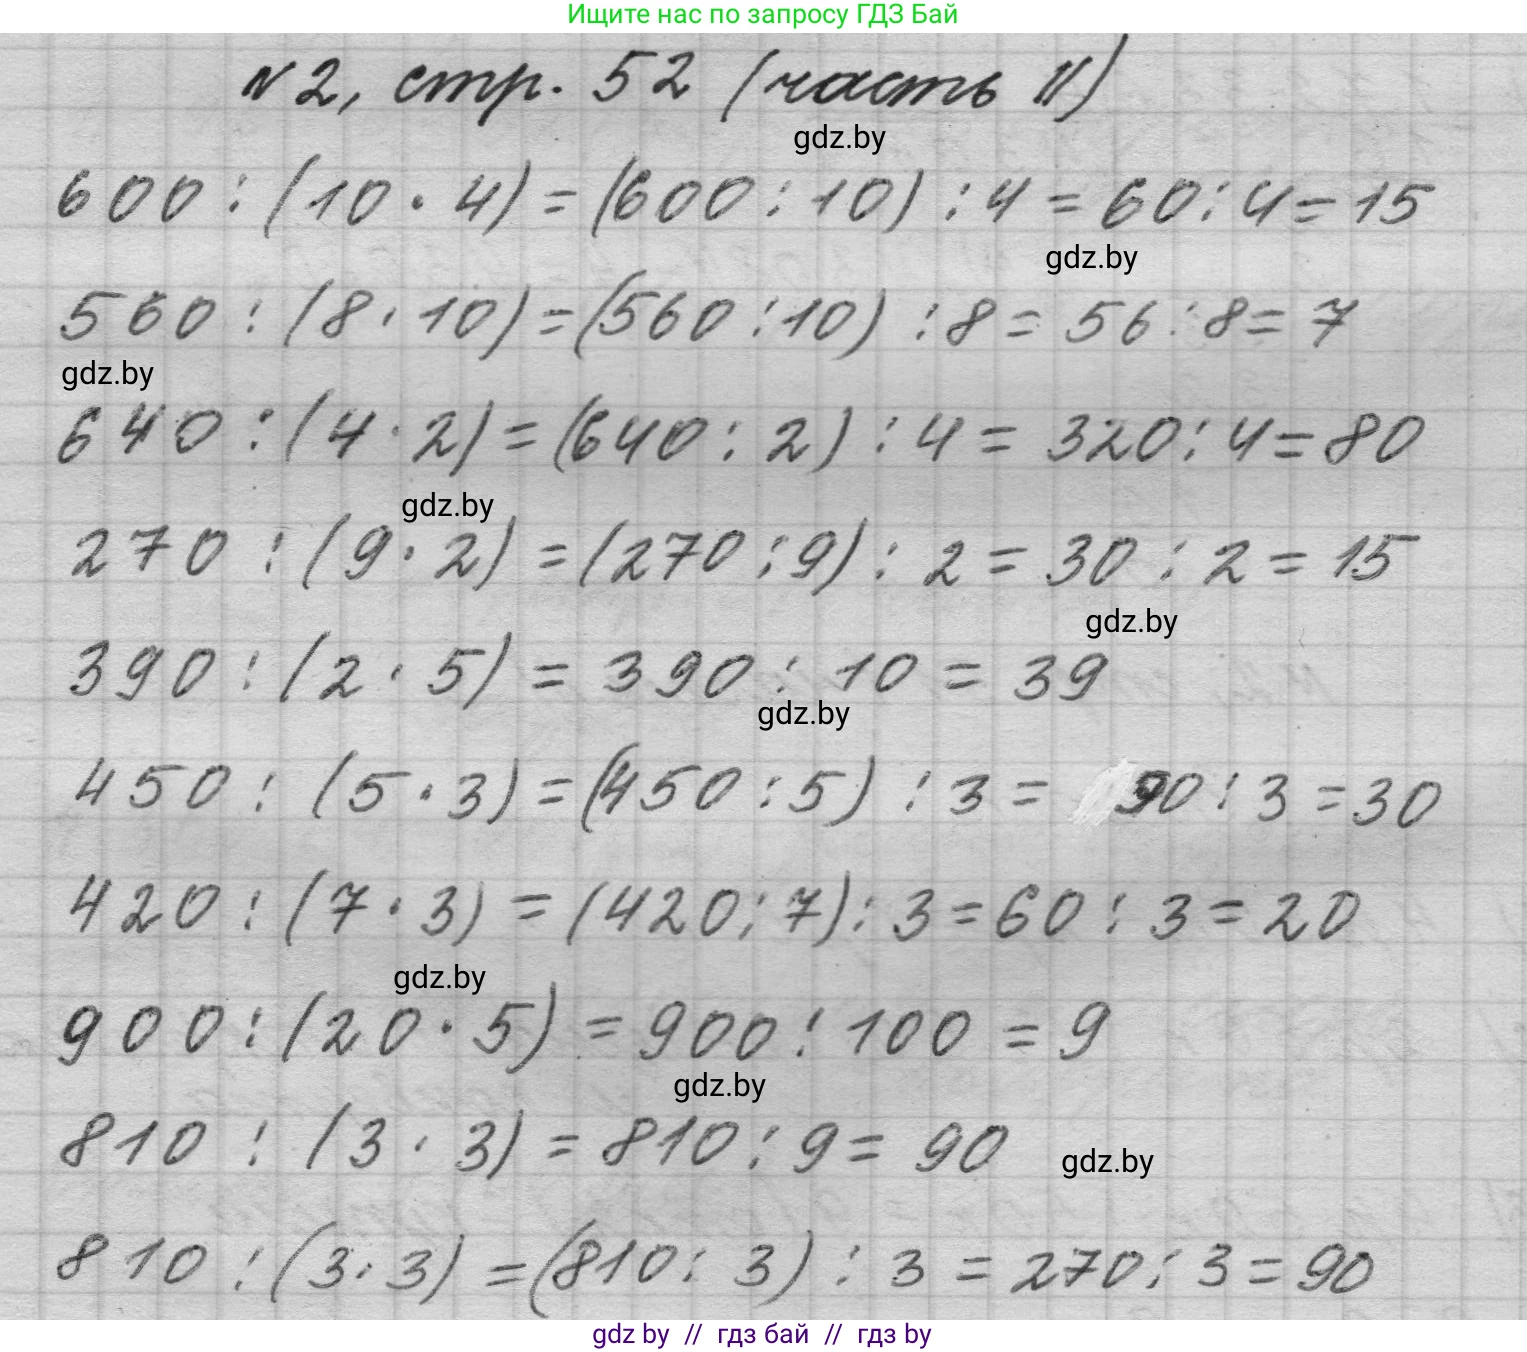 Ищите нас по запросу ГДЗ Бай
№2, стр. 52 (часть II)
gdz.by
600 : (10 · 4) = (600 : 10) : 4 = 60 : 4 = 15
gdz.by
560 : (8 · 10) = (560 : 10) : 8 = 56 : 8 = 7
gdz.by
640 : (4 · 2) = (640 : 2) : 4 = 320 : 4 = 80
gdz.by
270 : (9 · 2) = (270 : 9) : 2 = 30 : 2 = 15
gdz.by
390 : (2 · 5) = 390 : 10 = 39
gdz.by
450 : (5 · 3) = (450 : 5) : 3 = 90 : 3 = 30
420 : (7 · 3) = (420 : 7) : 3 = 60 : 3 = 20
gdz.by
900 : (20 · 5) = 900 : 100 = 9
gdz.by
810 : (3 · 3) = 810 : 9 = 90
gdz.by
810 : (3 · 3) = (810 : 3) : 3 = 270 : 3 = 90
gdz by // гдз бай // гдз by